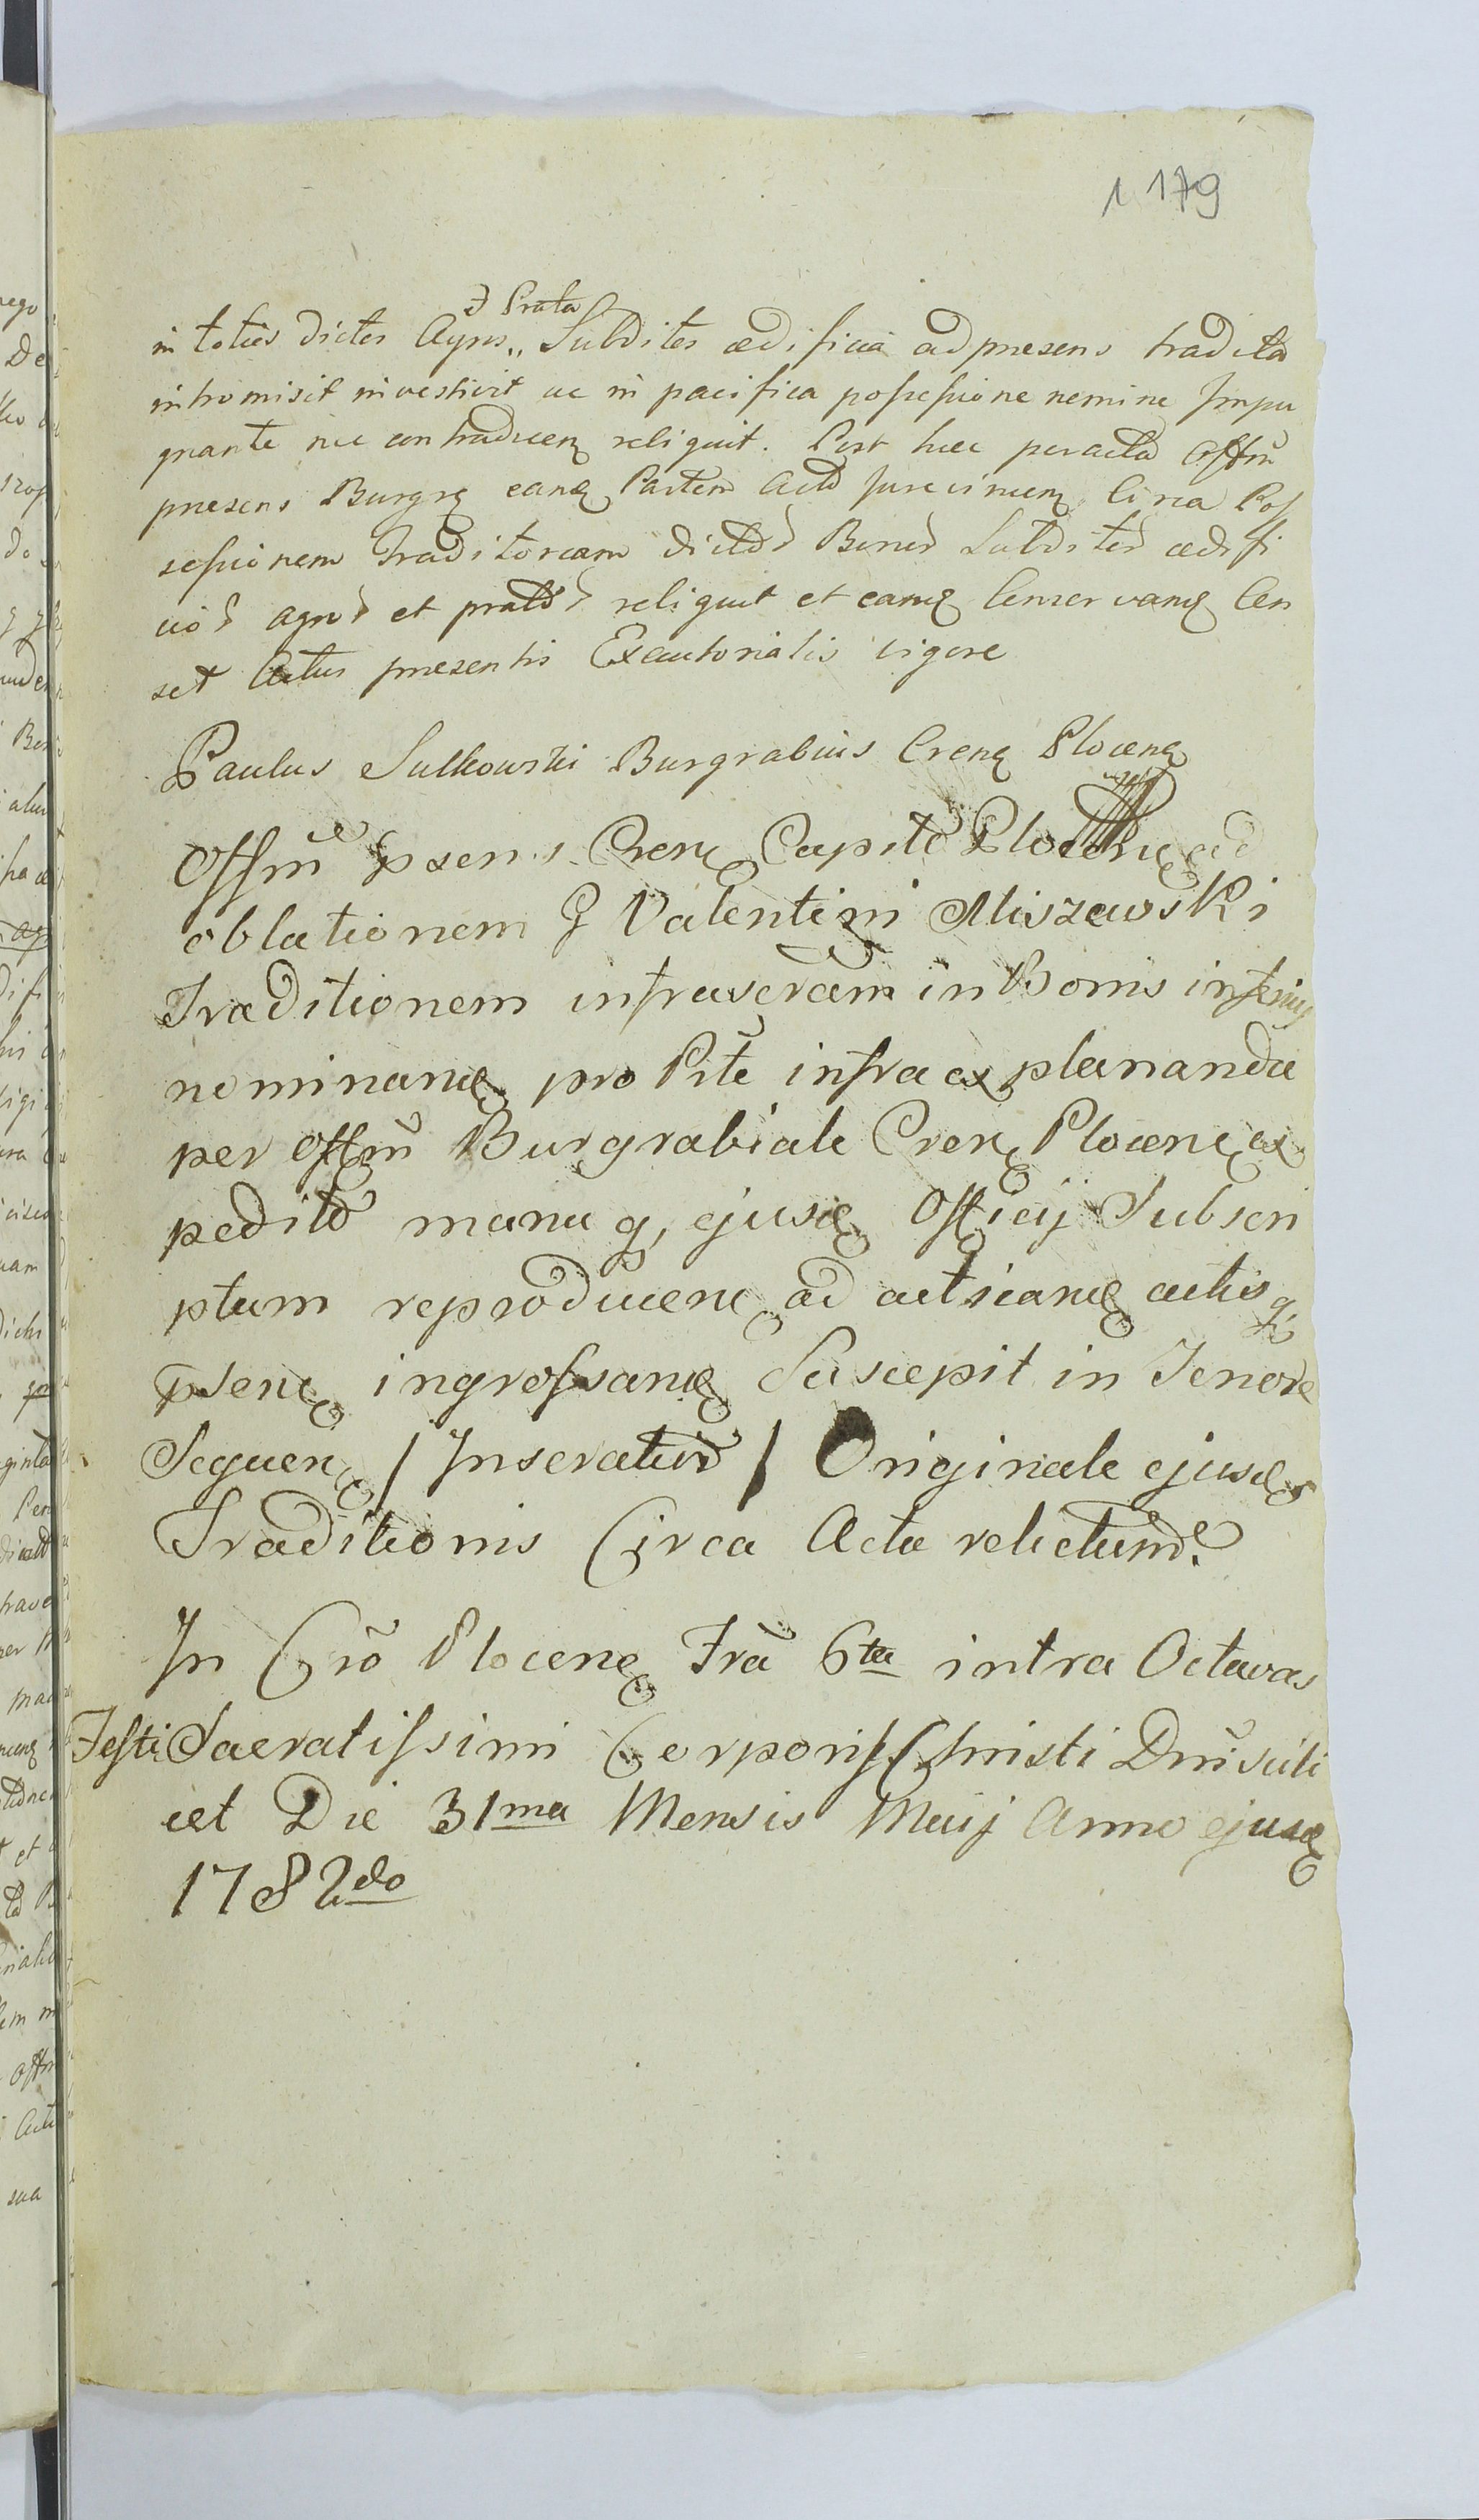 1 179
et Prata
in toties dictos Agros,, Subditos ædificia ad præsens tradita
intromisit investivit ac in pacifica possessione nemine Impu
gnante nec contradicen reliquit. Post hæc peracta Offm
præsens Burgr eand Partem Actor jure vincen Circa Pos
sessionem Traditoream dictor Bonor Subditor ædifi
cior agror et prator reliquit et eand Conservand Cen
set Actus præsentis Exautorialis vigore
Paulus Sulkowski Burgrabius Crens Plocens
Offm præsens Crens Capitle Plocens ad
oblationem G Valentini Miszewski
Traditionem infrascram in Bonis inferius
nominand pro Pte infra explananda
per Offm Burgrabiale Crens Plocens ex
peditt manu q, ejusd Officij Subscri
ptum reproducen ad acticand actis q
psen ingrossand Suscepit in Tenore
Sequen / Inseratur / Originale ejusd
Traditionis Circa Acta relictum e
In Cro Plocens Fra 6ta intra Octavas
Festi Sacratissimi Corporis Christi Dni scili
cet Die 31ma Mensis Maij Anno ejusd
1782do